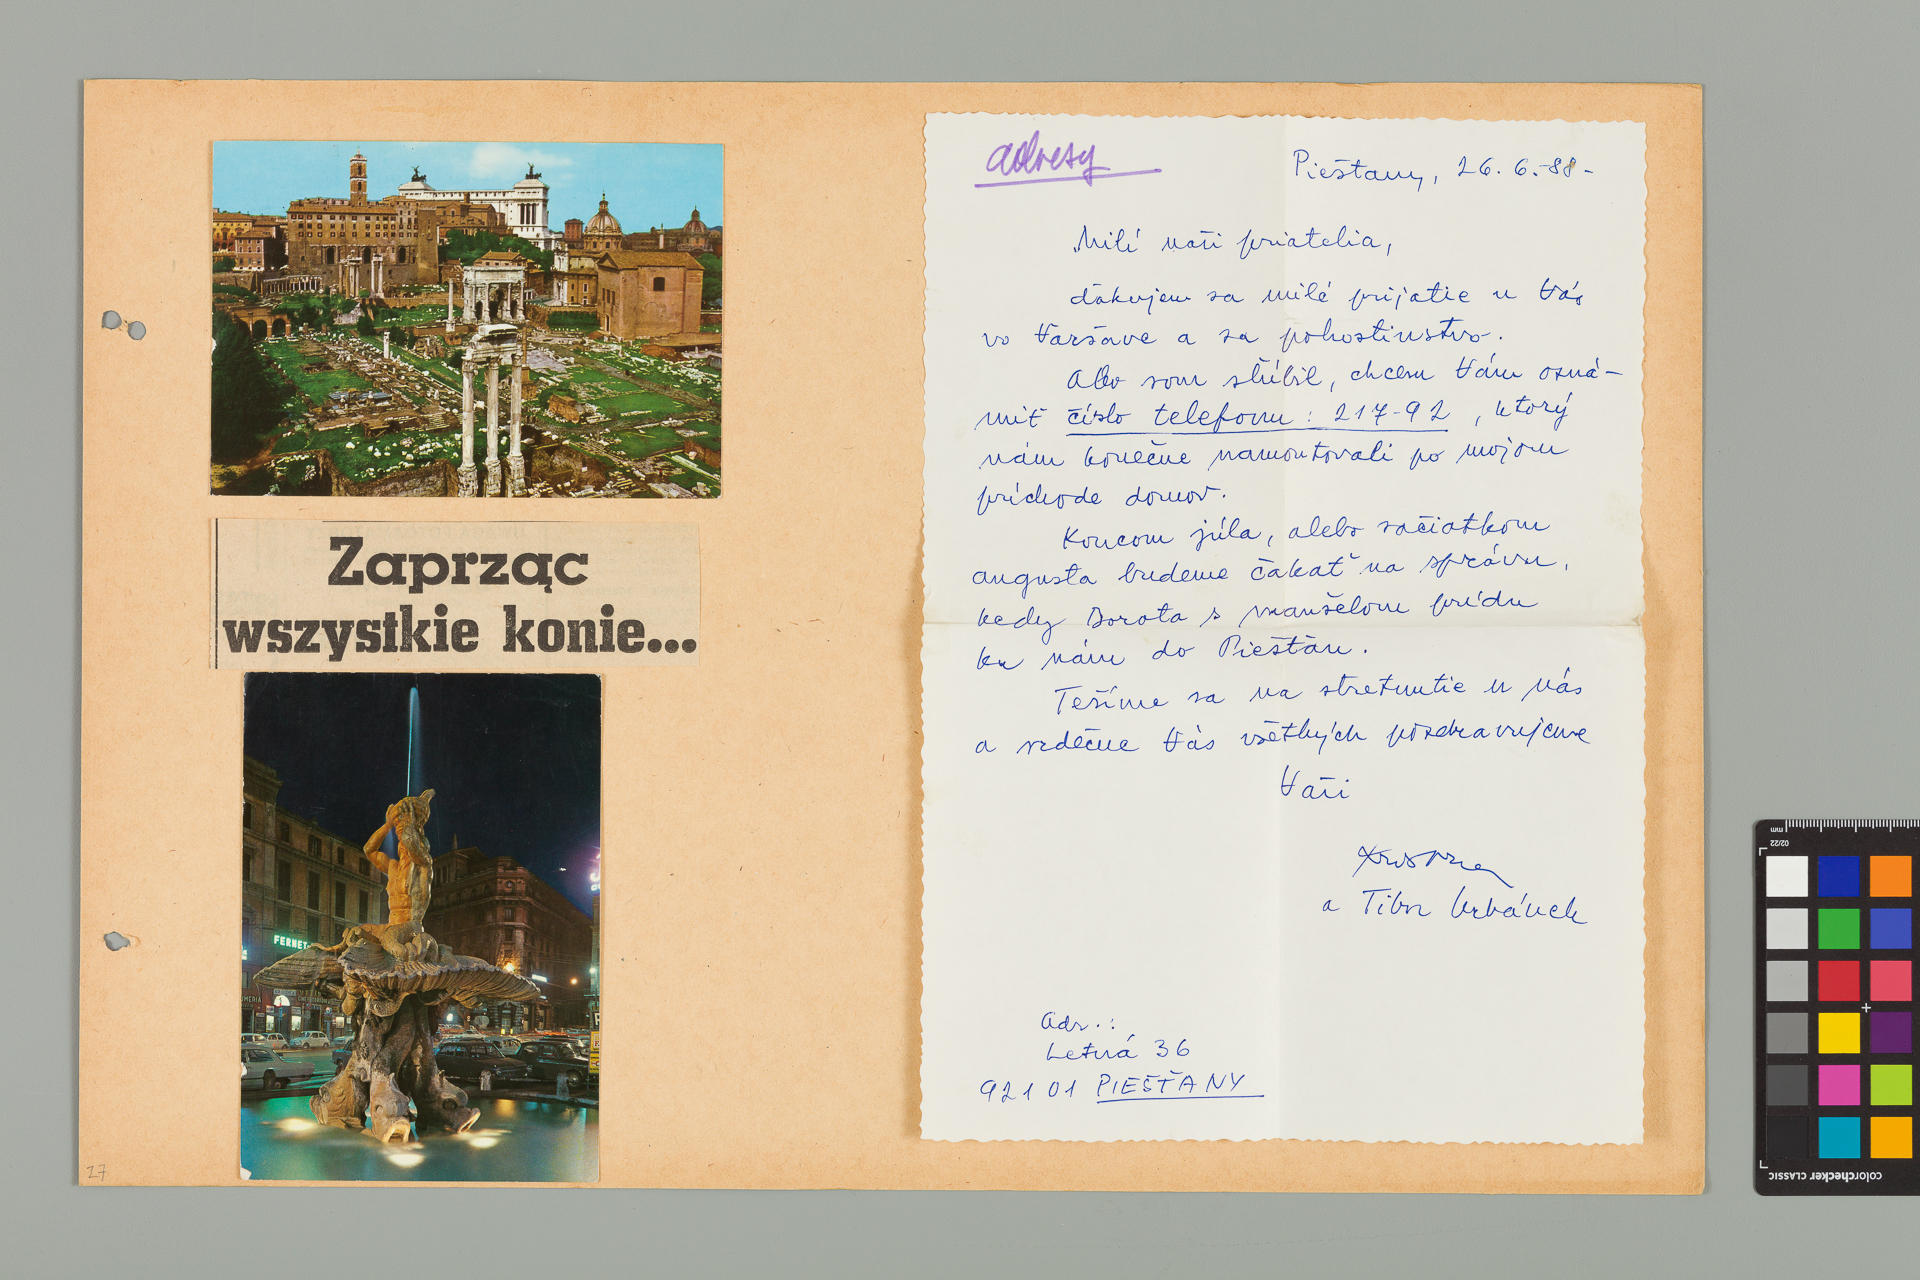 Zaprząc
wszystkie konie...
FERNET
UMERIA
adresy
Piešťany, 26. 6. -88-
Milí naši priatelia,
ďakujem za milé prijatie u Vás
vo Varšave a za pohostinstvo.
Ako som sľúbil, chcem Vám ozná-
miť číslo telefonu: 217-92, ktorý
nám konečne namontovali po mojom
príchode domov.
Koncom júla, alebo začiatkom
augusta budeme čakať na správu,
kedy Dorota s manželom prídu
ku nám do Piešťan.
Tešíme sa na stretnutie u nás
a srdečne Vás všetkých pozdravujeme
Vaši
a Tibor Urbánek
Adr.:
Letná 36
921 01 PIEŠŤANY
27
mm
02/22
colorchecker CLASSIC